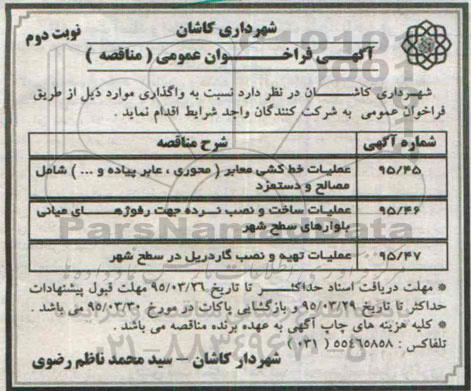 شهرداری کاشان
نوبت دوم
آگهی فراخوان عمومی ( مناقصه )
شهرداری کاشان در نظر دارد نسبت به واگذاری موارد ذیل از طریق
فراخوان عمومی به شرکت کنندگان واجد شرایط اقدام نماید .
شماره آگهی شرح مناقصه
۹۵/۴۵ عملیات خط کشی معابر ( محوری ، عابر پیاده و ... ) شامل
مصالح و دستمزد
۹۵/۴۶ عملیات ساخت و نصب نرده جهت رفوژهای میانی
بلوارهای سطح شهر
۹۵/۴۷ عملیات تهیه و نصب گاردریل در سطح شهر
* مهلت دریافت اسناد حداکثر تا تاریخ ۹۵/۰۳/۲۶ مهلت قبول پیشنهادات
حداکثر تا تاریخ ۹۵/۰۳/۲۹ و بازگشایی پاکات در مورخ ۹۵/۰۳/۳۰ می باشد .
* کلیه هزینه های چاپ آگهی به عهده برنده مناقصه می باشد .
تلفاکس : ۵۵۴۶۵۸۵۸ ( ۰۳۱ )
شهردار کاشان – سید محمد ناظم رضوی
ParsNamadData
۰۲۱-۸۸۳۴۹۶۷۰-۵